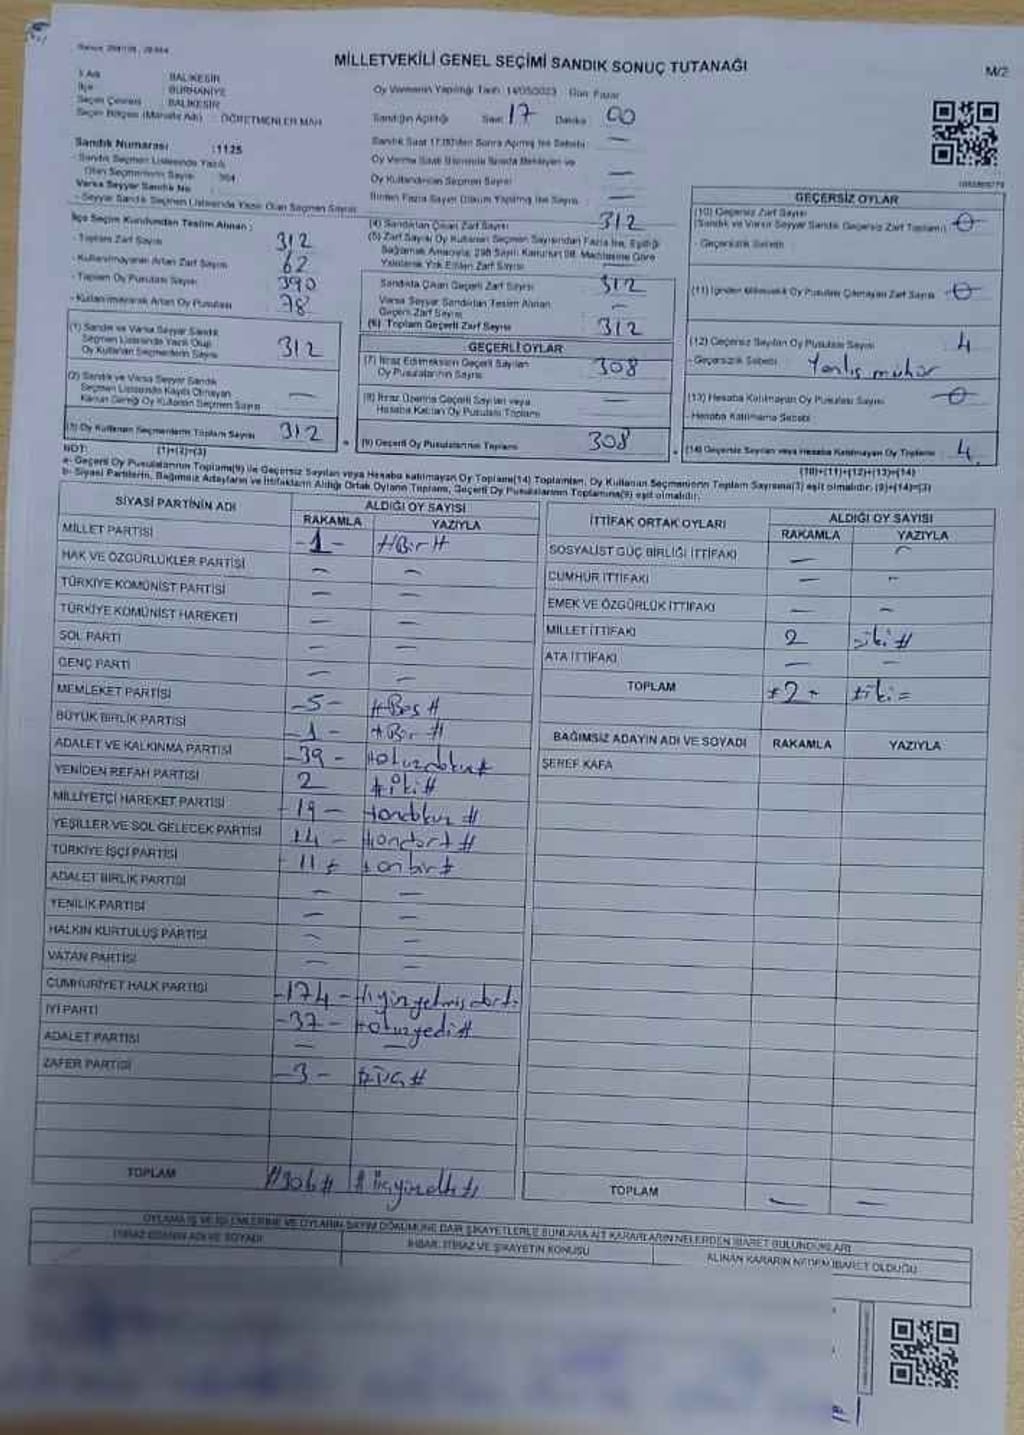 MİLLETVEKİLİ GENEL SEÇİMİ SANDIK SONUÇ TUTANAĞI
M/2
İl Adı BALIKESİR
İlçe BURHANİYE
Seçim Çevresi BALIKESİR
Seçim Bölgesi (Mahalle Adı) : ÖĞRETMENLER MAH
Oy Vermenin Yapıldığı Tarih 14/05/2023 Gün Pazar
Sandığın Açıldığı Saat 17 Dakika 00
Sandık Numarası :1125
Sandık Seçmen Listesinde Yazılı
Olan Seçmenlerin Sayısı
Varsa Seyyar Sandık No
- Seyyar Sandık Seçmen Listesinde Yazılı Olan Seçmen Sayısı
Sandık Saat 17.00'den Sonra Açılmış İse Sebebi —
Oy Kullandırılan Seçmen Sayısı —
İlçe Seçim Kurulundan Teslim Alınan :
- Toplam Zarf Sayısı 312
- Kullanılmayarak Artan Zarf Sayısı 62
- Toplam Oy Pusulası Sayısı 390
- Kullanılmayarak Artan Oy Pusulası 78
(1) Sandık ve Varsa Seyyar Sandık
Seçmen Listesinde Yazılı Olup
Oy Kullanan Seçmenlerin Sayısı 312
(2) Sandık ve Varsa Seyyar Sandık
Seçmen Listesinde Kayıtlı Olmayan
Kanun Gereği Oy Kullanan Seçmen Sayısı —
(3) Oy Kullanan Seçmenlerin Toplam Sayısı 312
(1)+(2)=(3)
(4) Sandıktan Çıkan Zarf Sayısı 312
(5) Zarf Sayısı Oy Kullanan Seçmen Sayısından Fazla İse, Eşitliği
Bağlamak Amacıyla, 298 Sayılı Kanun'un 98. Maddesine Göre
Yakılarak Yok Edilen Zarf Sayısı
Sandıkta Çıkan Geçerli Zarf Sayısı 312
Varsa Seyyar Sandıktan Teslim Alınan
Geçerli Zarf Sayısı —
(6) Toplam Geçerli Zarf Sayısı 312
GEÇERLİ OYLAR
(7) İtiraz Edilmeksizin Geçerli Sayılan
Oy Pusulalarının Sayısı 308
(8) İtiraz Üzerine Geçerli Sayılan veya
Hesaba Katılan Oy Pusulası Toplamı —
(9) Geçerli Oy Pusulalarının Toplamı 308
GEÇERSİZ OYLAR
(10) Geçersiz Zarf Sayısı
(Sandık ve Varsa Seyyar Sandık Geçersiz Zarf Toplamı) 0
- Geçersizlik Sebebi
(11) İçinden Milletvekili Oy Pusulası Çıkmayan Zarf Sayısı 0
(12) Geçersiz Sayılan Oy Pusulası Sayısı 4
- Geçersizlik Sebebi Yanlış mühür
(13) Hesaba Katılmayan Oy Pusulası Sayısı 0
- Hesaba Katılmama Sebebi
(14) Geçersiz Sayılan veya Hesaba Katılmayan Oy Toplamı 4
(10)+(11)+(12)+(13)=(14)
NOT:
a- Geçerli Oy Pusulalarının Toplamı(9) ile Geçersiz Sayılan veya Hesaba katılmayan Oy Toplamı(14) Toplamları, Oy Kullanan Seçmenlerin Toplam Sayısına(3) eşit olmalıdır. (9)+(14)=(3)
b- Siyasi Partilerin, Bağımsız Adayların ve İttifakların Aldığı Ortak Oyların Toplamı, Geçerli Oy Pusulalarının Toplamına(9) eşit olmalıdır.
SİYASİ PARTİNİN ADI ALDIĞI OY SAYISI
RAKAMLA YAZIYLA
MİLLET PARTİSİ -1- #Bir#
HAK VE ÖZGÜRLÜKLER PARTİSİ — —
TÜRKİYE KOMÜNİST PARTİSİ — —
TÜRKİYE KOMÜNİST HAREKETİ — —
SOL PARTİ — —
GENÇ PARTİ — —
MEMLEKET PARTİSİ -5- #Beş#
BÜYÜK BİRLİK PARTİSİ -1- #Bir#
ADALET VE KALKINMA PARTİSİ -39- #otuzdokuz#
YENİDEN REFAH PARTİSİ 2 #iki#
MİLLİYETÇİ HAREKET PARTİSİ -19- #ondokuz#
YEŞİLLER VE SOL GELECEK PARTİSİ 14- #ondört#
TÜRKİYE İŞÇİ PARTİSİ 11 #onbir#
ADALET BİRLİK PARTİSİ — —
YENİLİK PARTİSİ — —
HALKIN KURTULUŞ PARTİSİ — —
VATAN PARTİSİ — —
CUMHURİYET HALK PARTİSİ -174- #yüzyetmişdört
İYİ PARTİ -37- #otuzyedi#
ADALET PARTİSİ — —
ZAFER PARTİSİ -3- #üç#
TOPLAM #306# #üçyüzaltı#
İTTİFAK ORTAK OYLARI ALDIĞI OY SAYISI
RAKAMLA YAZIYLA
SOSYALİST GÜÇ BİRLİĞİ İTTİFAKI — —
CUMHUR İTTİFAKI — —
EMEK VE ÖZGÜRLÜK İTTİFAKI — —
MİLLET İTTİFAKI 2 iki#
ATA İTTİFAKI — —
TOPLAM #2- #iki=
BAĞIMSIZ ADAYIN ADI VE SOYADI RAKAMLA YAZIYLA
ŞEREF KAFA
TOPLAM — —
OYLAMA İŞ VE İŞLEMLERİNE VE OYLARIN SAYIM DÖKÜMÜNE DAİR ŞİKAYETLERLE BUNLARA AİT KARARLARIN NELERDEN İBARET BULUNDUKLARI
İTİRAZ EDENİN ADI VE SOYADI İHBAR, İTİRAZ VE ŞİKAYETİN KONUSU ALINAN KARARIN NEDEN İBARET OLDUĞU